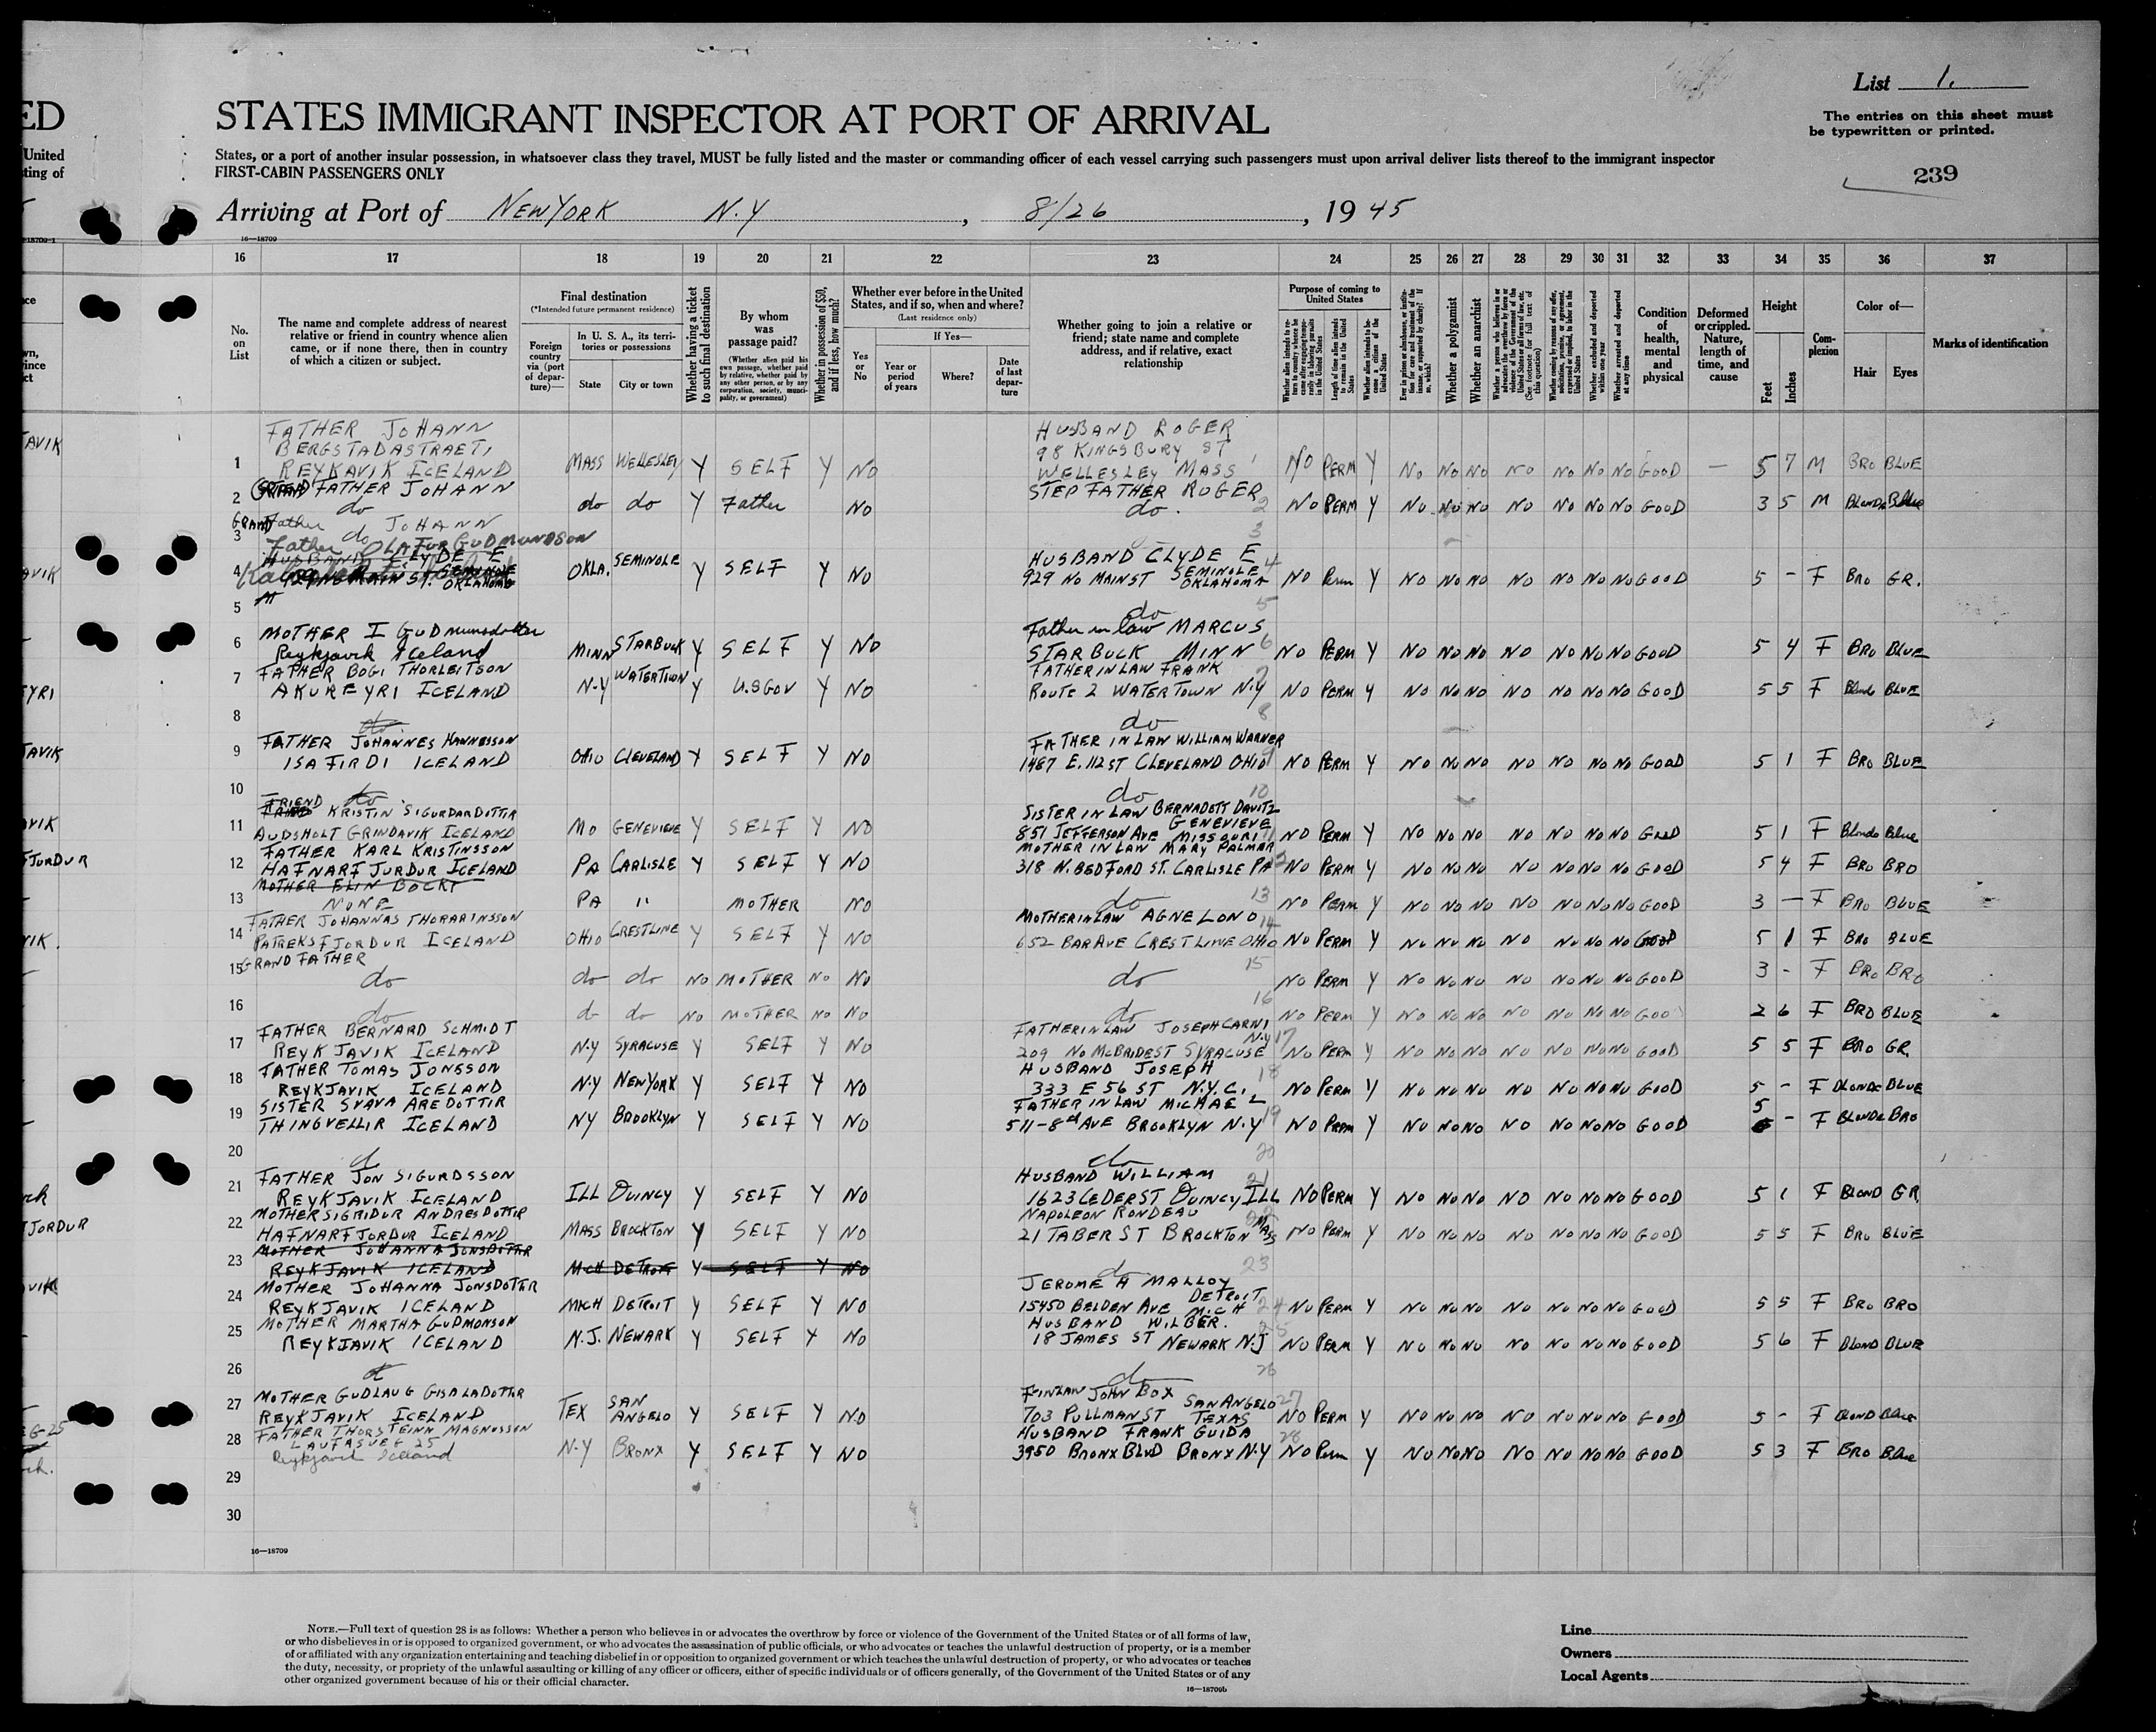 List 1.
The entries on this sheet must
be typewritten or printed.
239
ED
STATES IMMIGRANT INSPECTOR AT PORT OF ARRIVAL
United
ting of
States, or a port of another insular possession, in whatsoever class they travel, MUST be fully listed and the master or commanding officer of each vessel carrying such passengers must upon arrival deliver lists thereof to the immigrant inspector
FIRST-CABIN PASSENGERS ONLY
Arriving at Port of NEW YORK N.Y , 8/26 , 19 45
16—18709
16 17 18 19 20 21 22 23 24 25 26 27 28 29 30 31 32 33 34 35 36 37
No. on List
The name and complete address of nearest relative or friend in country whence alien came, or if none there, then in country of which a citizen or subject.
Final destination
(*Intended future permanent residence)
Foreign country via (port of departure)—
In U. S. A., its territories or possessions
State City or town
Whether having a ticket to such final destination
By whom was passage paid?
(Whether alien paid his own passage, whether paid by relative, whether paid by any other person, or by any corporation, society, municipality, or government)
Whether in possession of $50, and if less, how much?
Whether ever before in the United States, and if so, when and where?
(Last residence only)
Yes or No
If Yes—
Year or period of years
Where?
Date of last departure
Whether going to join a relative or friend; state name and complete address, and if relative, exact relationship
Purpose of coming to United States
Whether a polygamist
Whether an anarchist
Whether excluded and deported within one year
Whether arrested and deported at any time
Condition of health, mental and physical
Deformed or crippled. Nature, length of time, and cause
Height
Feet Inches
Complexion
Color of—
Hair Eyes
Marks of identification
FATHER JOHANN HUSBAND ROGER
BERGSTADASTRAETI 98 KINGSBURY ST
1 REYKAVIK ICELAND MASS WELLESLEY Y SELF Y NO WELLESLEY MASS NO PERM Y NO NO NO NO NO NO NO GOOD — 5 7 M BRO BLUE
GRAND FATHER JOHANN STEP FATHER ROGER
2 do do do Y Father NO do. NO PERM Y NO NO NO NO NO NO NO GOOD 3 5 M BLONDE Blue
GRAND Father JOHANN
3 do
Father OLAFUR GUDMUNDSON
HUSBAND CLYDE E HUSBAND CLYDE E
4 929 NO MAIN ST. SEMINOLE OKLAHOMA OKLA. SEMINOLE Y SELF Y NO 929 NO MAIN ST SEMINOLE OKLAHOMA NO Perm Y NO NO NO NO NO NO NO GOOD 5 - F BRO GR.
5 do
MOTHER I GUDmunsdotter Father in law MARCUS
6 Reykjavik Iceland MINN STARBUCK Y SELF Y NO STARBUCK MINN NO PERM Y NO NO NO NO NO NO NO GOOD 5 4 F BRO BLUE
FATHER BOGI THORLEITSON FATHER IN LAW FRANK
7 AKUREYRI ICELAND N.Y WATERTOWN Y U.S GOV Y NO ROUTE 2 WATERTOWN N.Y NO PERM Y NO NO NO NO NO NO NO GOOD 5 5 F Blonde BLUE
8 do do
FATHER JOHANNES HANNESSON FATHER IN LAW WILLIAM WARNER
9 ISAFIRDI ICELAND OHIO CLEVELAND Y SELF Y NO 1487 E. 112 ST CLEVELAND OHIO NO PERM Y NO NO NO NO NO NO NO GOOD 5 1 F BRO BLUE
10 do do
FRIEND KRISTIN SIGURDARDOTTIR SISTER IN LAW BERNADOTT DAVITZ
11 AUDSHOLT GRINDAVIK ICELAND MO GENEVIEVE Y SELF Y NO 851 JEFFERSON AVE GENEVIEVE MISSOURI NO PERM Y NO NO NO NO NO NO NO GOOD 5 1 F Blonde Blue
FATHER KARL KRISTINSSON MOTHER IN LAW MARY PALMAR
12 HAFNARFJORDUR ICELAND PA CARLISLE Y SELF Y NO 318 N. BEDFORD ST. CARLISLE PA NO PERM Y NO NO NO NO NO NO NO GOOD 5 4 F BRO BRO
MOTHER ELIN BOCKT
13 NONE PA " MOTHER NO do NO PERM Y NO NO NO NO NO NO NO GOOD 3 — F BRO BLUE
FATHER JOHANNAS THORARINSSON MOTHER IN LAW AGNE LOND
14 PATREKSFJORDUR ICELAND OHIO CRESTLINE Y SELF Y NO 652 BAR AVE CRESTLINE OHIO NO PERM Y NO NO NO NO NO NO NO GOOD 5 1 F BRO BLUE
GRAND FATHER
15 do do do NO MOTHER NO NO do NO PERM Y NO NO NO NO NO NO NO GOOD 3 - F BRO BRO
16 do do do NO MOTHER NO NO do NO PERM Y NO NO NO NO NO NO NO GOO 2 6 F BRO BLUE
FATHER BERNARD SCHMIDT FATHER IN LAW JOSEPH CARNI
17 REYKJAVIK ICELAND N.Y SYRACUSE Y SELF Y NO 209 NO McBRIDE ST SYRACUSE N.Y NO PERM Y NO NO NO NO NO NO NO GOOD 5 5 F BRO GR.
FATHER TOMAS JONSSON HUSBAND JOSEPH
18 REYKJAVIK ICELAND N.Y NEWYORK Y SELF Y NO 333 E 56 ST N.Y.C. NO PERM Y NO NO NO NO NO NO NO GOOD 5 - F BLONDE BLUE
SISTER SVAVA AREDOTTIR FATHER IN LAW MICHAEL
19 THINGVELLIR ICELAND NY BROOKLYN Y SELF Y NO 511-8th AVE BROOKLYN N.Y NO PERM Y NO NO NO NO NO NO NO GOOD 5 - F BLONDE BRO
20 do do
FATHER JON SIGURDSSON HUSBAND WILLIAM
21 REYKJAVIK ICELAND ILL QUINCY Y SELF Y NO 1623 CEDER ST QUINCY ILL NO PERM Y NO NO NO NO NO NO NO GOOD 5 1 F BLOND GR
MOTHER SIGRIDUR ANDRESDOTTIR NAPOLEON RONDEAU
22 HAFNARFJORDUR ICELAND MASS BROCKTON Y SELF Y NO 21 TABER ST BROCKTON MASS NO PERM Y NO NO NO NO NO NO NO GOOD 5 5 F BRO BLUE
MOTHER JOHANNA JONSDOTTIR
23 REYKJAVIK ICELAND MCH DETROIT Y SELF Y NO do
MOTHER JOHANNA JONSDOTTER JEROME H MALLOY
24 REYKJAVIK ICELAND MICH DETROIT Y SELF Y NO 15450 BELDEN AVE DETROIT MICH NO PERM Y NO NO NO NO NO NO NO GOOD 5 5 F BRO BRO
MOTHER MARTHA GUDMONSON HUSBAND WILBER.
25 REYKJAVIK ICELAND N.J. NEWARK Y SELF Y NO 18 JAMES ST NEWARK N.J NO PERM Y NO NO NO NO NO NO NO GOOD 5 6 F BLOND BLUE
26 do
MOTHER GUDLAUG GISALADOTTIR F IN LAW JOHN BOX
27 REYKJAVIK ICELAND TEX SAN ANGELO Y SELF Y NO 703 PULLMAN ST SAN ANGELO TEXAS NO PERM Y NO NO NO NO NO NO NO GOOD 5 - F BLOND Blue
FATHER THORSTEINN MAGNUSSON HUSBAND FRANK GUIDA
LAUFASVEG 25
28 Reykjavik Iceland N.Y BRONX Y SELF Y NO 3950 BRONX BLVD BRONX N.Y NO Perm Y NO NO NO NO NO NO NO GOOD 5 3 F BRO Blue
29
30
16—18709
NOTE.—Full text of question 28 is as follows: Whether a person who believes in or advocates the overthrow by force or violence of the Government of the United States or of all forms of law,
or who disbelieves in or is opposed to organized government, or who advocates the assassination of public officials, or who advocates or teaches the unlawful destruction of property, or is a member
of or affiliated with any organization entertaining and teaching disbelief in or opposition to organized government or which teaches the unlawful destruction of property, or who advocates or teaches
the duty, necessity, or propriety of the unlawful assaulting or killing of any officer or officers, either of specific individuals or of officers generally, of the Government of the United States or of any
other organized government because of his or their official character.
16—18709b
Line
Owners
Local Agents